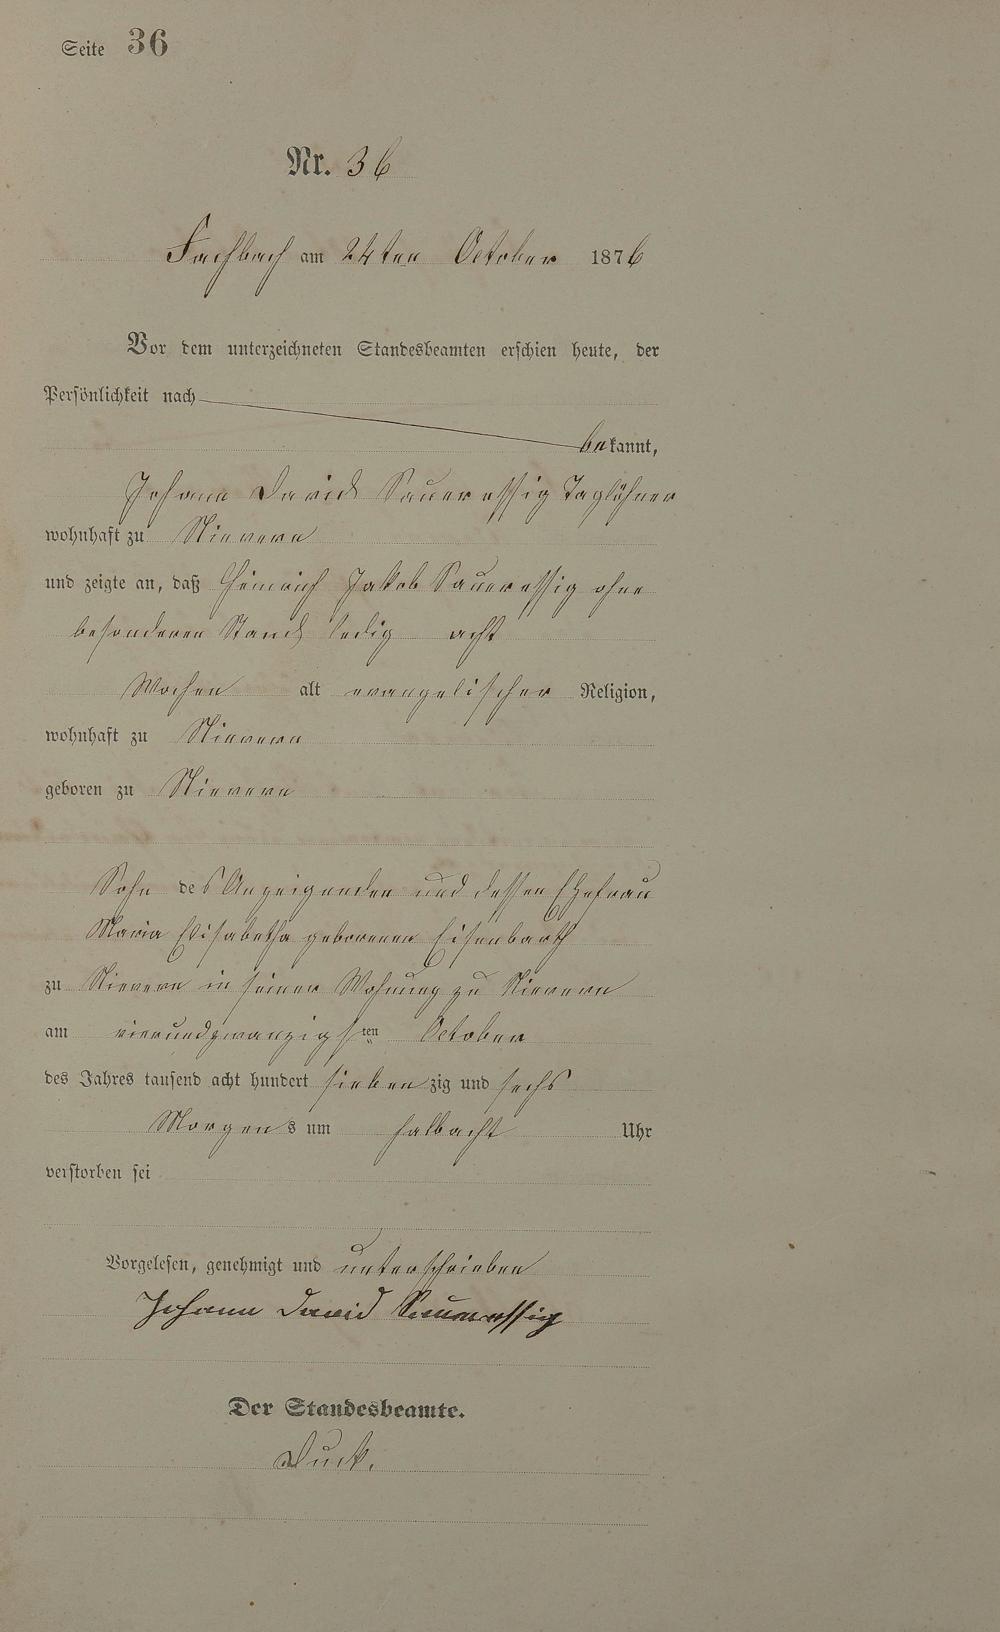 Seite 36
Nr. 36
Fachbach am 24ten October 1876
Vor dem unterzeichneten Standesbeamten erschien heute, der
Persönlichkeit nach
bekannt,
Johann David Saueressig Taglöhner
wohnhaft zu Nievern
und zeigte an, daß Heinrich Jakob Saueressig ohne
besonderen Stand ledig acht
Wochen alt evangelischer Religion,
wohnhaft zu Nievern
geboren zu Nievern
Sohn des Anzeigenden und dessen Ehefrau
Maria Elisabetha geborenen Eisenbarth
zu Nievern in seiner Wohnung zu Nievern
am vierundzwanzigsten October
des Jahres tausend acht hundert siebenzig und sechs
Morgens um halbacht Uhr
verstorben sei
Vorgelesen, genehmigt und unterschrieben
Johann David Saueressig
Der Standesbeamte.
Duck.